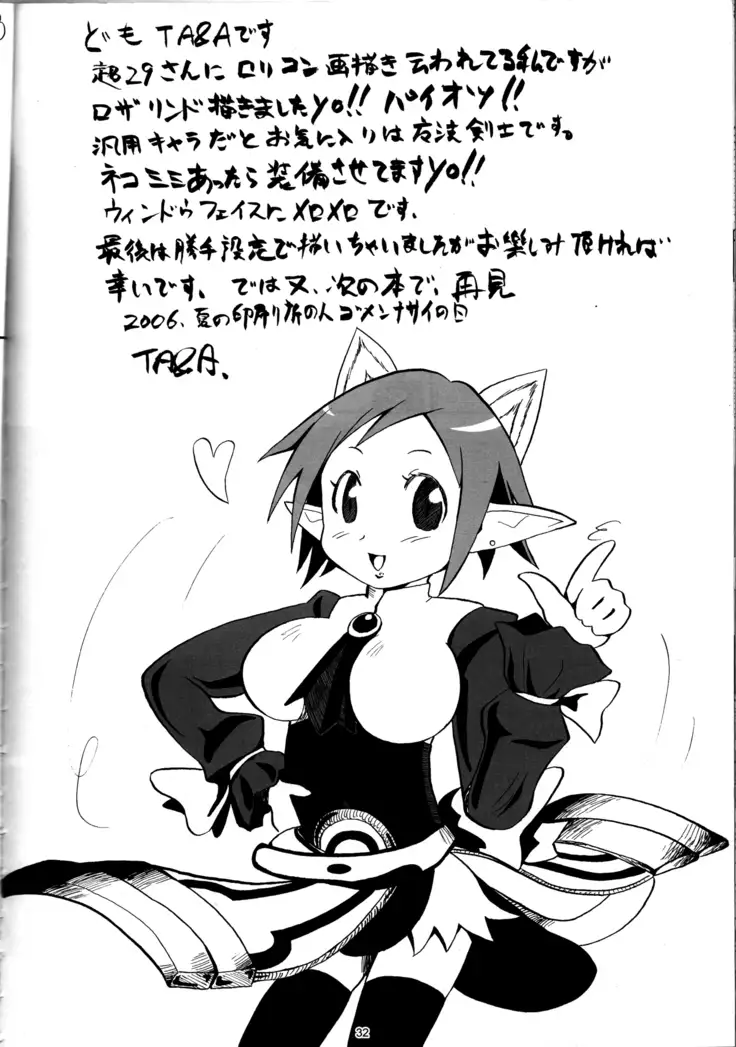 ども TA2Aです
超29さんに ロリコン 画描き 云われてる私ですが
ロザリンド描きましたyo!! パイオツ!!
汎用キャラだと お気に入りは 魔法剣士です。
ネコミミあったら 装備させてますyo!!
ウィンドゥフェイスにメロメロです.
最後は勝手設定で描いちゃいましたがお楽しみ頂ければ
幸いです. では又、次の本で、再見
2006. 夏の印刷所の人ゴメンナサイの日
TA2A.
32